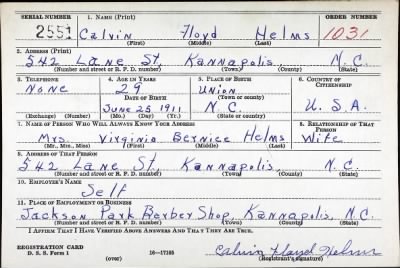 SERIAL NUMBER 1. NAME (Print) ORDER NUMBER
2551 Calvin Floyd Helms 1031
(First) (Middle) (Last)
2. ADDRESS (Print)
542 Lane St. Kannapolis, N.C.
(Number and street or R. F. D. number) (Town) (County) (State)
3. TELEPHONE 4. AGE IN YEARS 5. PLACE OF BIRTH 6. COUNTRY OF CITIZENSHIP
None 29 Union
DATE OF BIRTH (Town or county)
June 25 1911 N.C. U.S.A.
(Exchange) (Number) (Mo.) (Day) (Yr.) (State or country)
7. NAME OF PERSON WHO WILL ALWAYS KNOW YOUR ADDRESS 8. RELATIONSHIP OF THAT PERSON
Mrs. Virginia Bernice Helms Wife
(Mr., Mrs., Miss) (First) (Middle) (Last)
9. ADDRESS OF THAT PERSON
542 Lane St. Kannapolis, N.C.
(Number and street or R. F. D. number) (Town) (County) (State)
10. EMPLOYER'S NAME
Self
11. PLACE OF EMPLOYMENT OR BUSINESS
Jackson Park Barber Shop, Kannapolis, N.C.
(Number and street or R. F. D. number) (Town) (County) (State)
I AFFIRM THAT I HAVE VERIFIED ABOVE ANSWERS AND THAT THEY ARE TRUE.
REGISTRATION CARD
D. S. S. Form 1 16—17105 Calvin Floyd Helms
(over) (Registrant's signature)